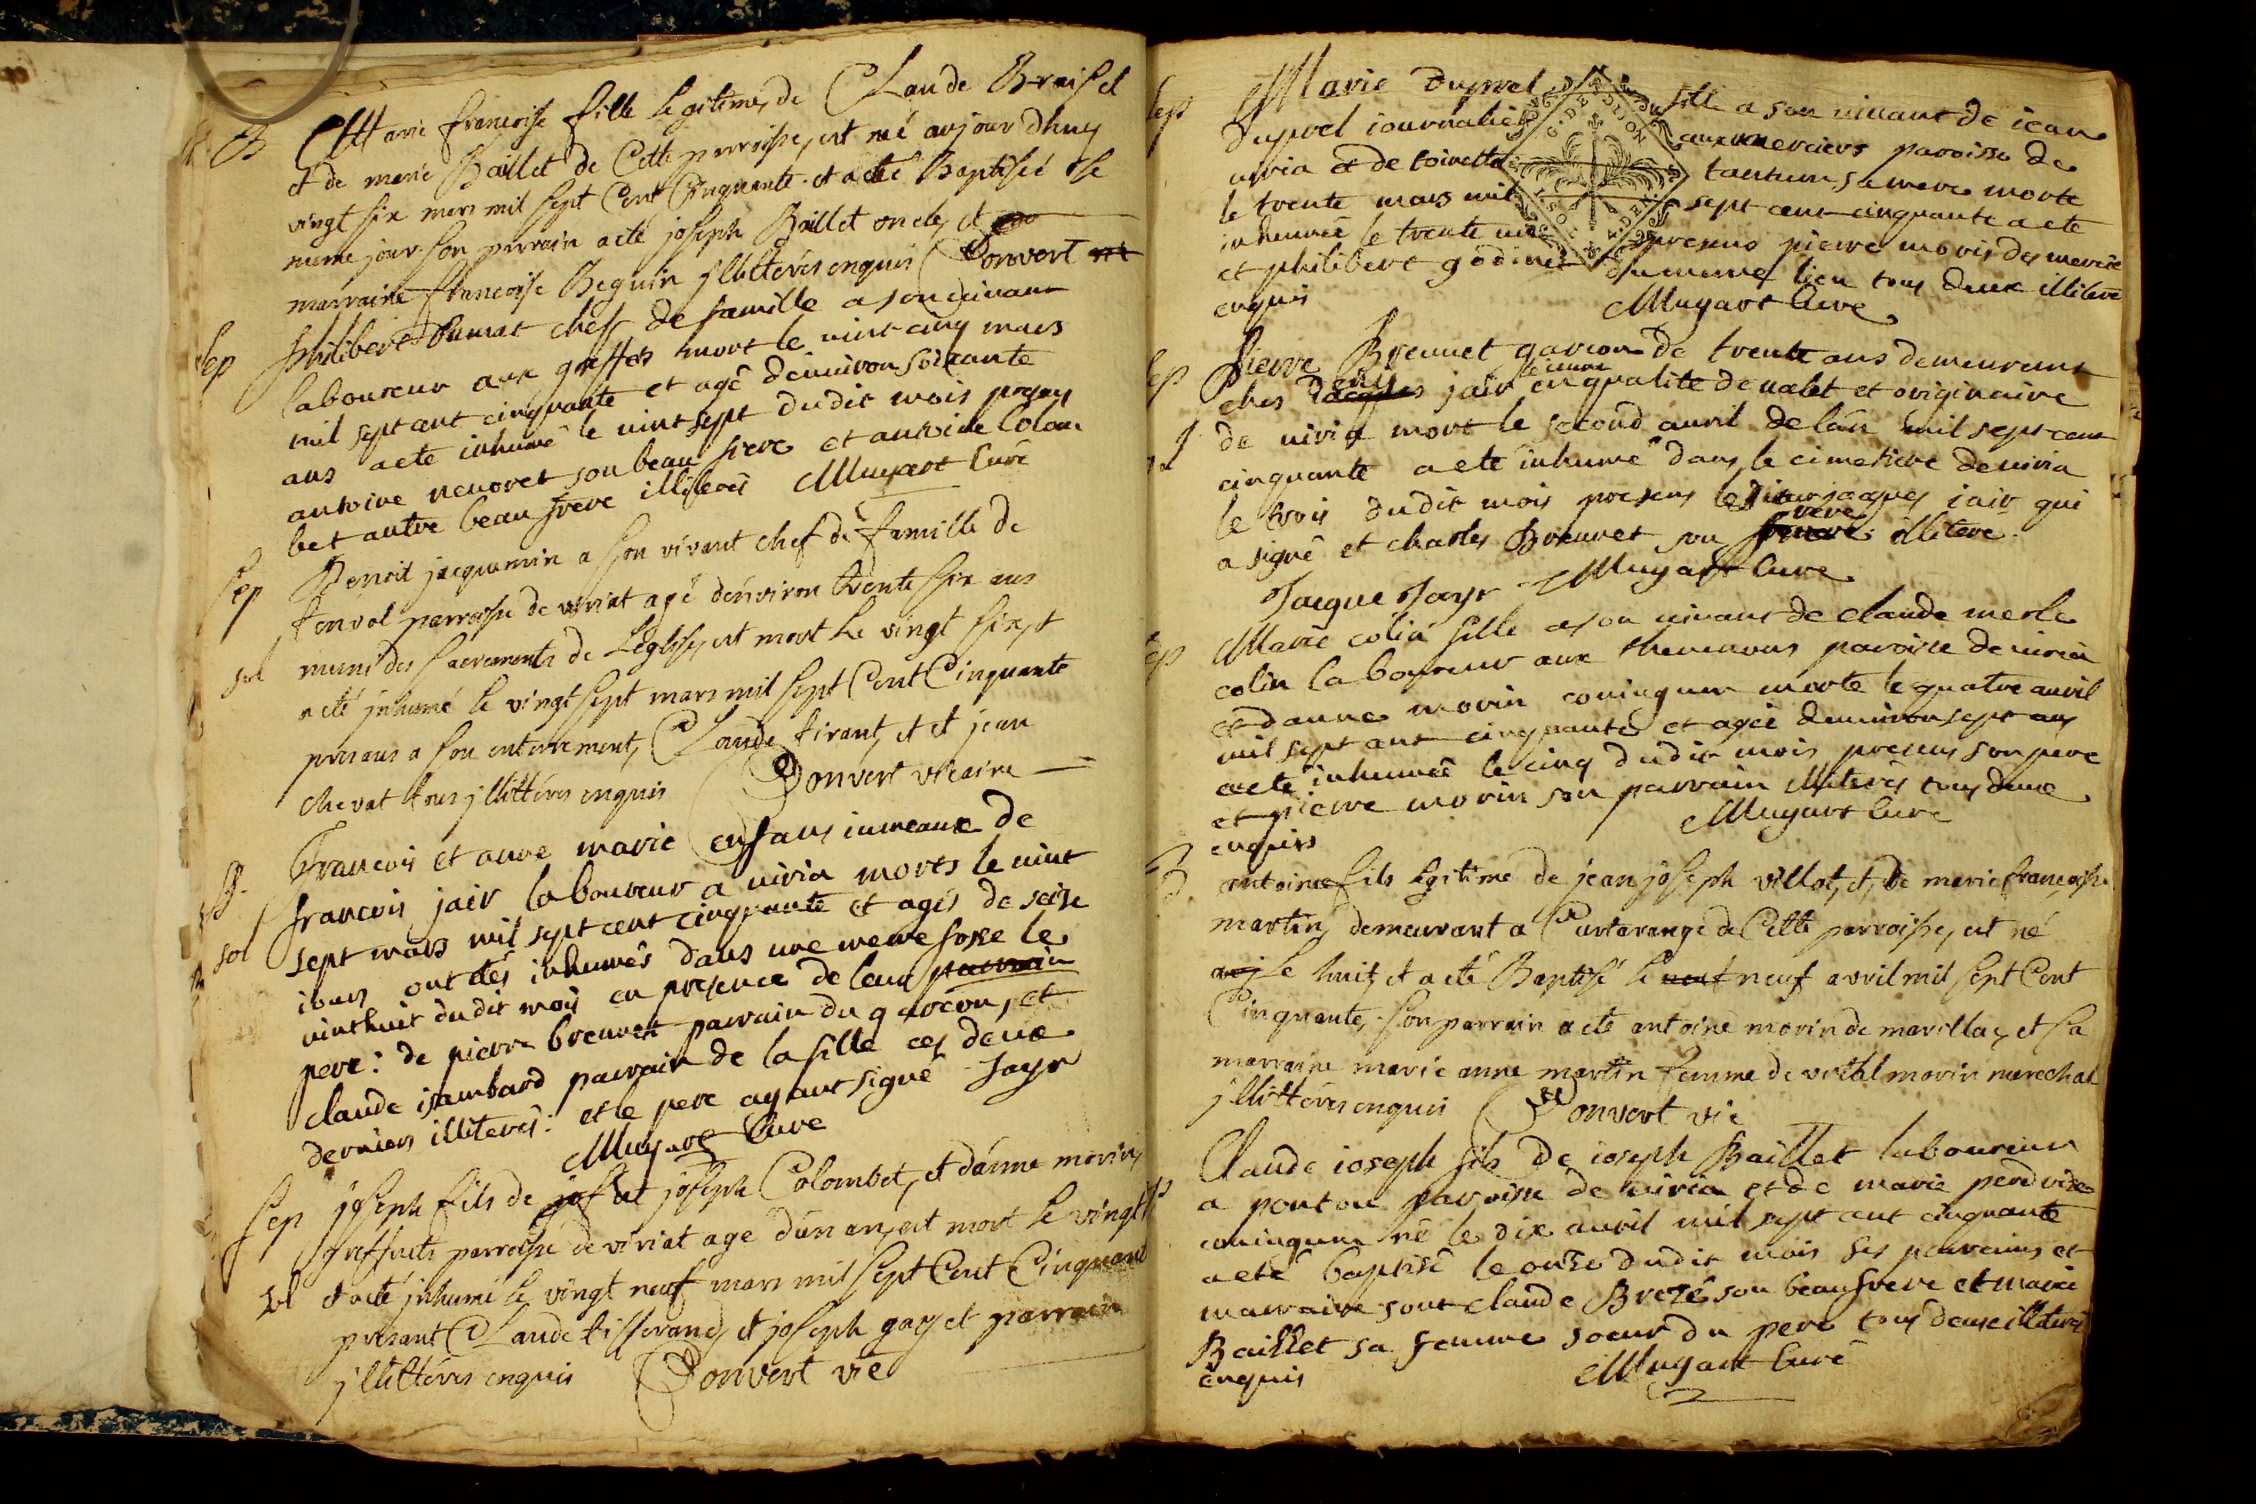 B Marie francoise fille legitime de Claude Braissel
et de marie Baillet de Cette parroisse, est né aujourdhuy
vingt six mars mil sept Cent Cinquante et a eté Baptisé le
meme jour son parrain a eté joseph Baillet oncle, et
marraine francoise Beguin jllitérés enquis Convert
sep philibert Dumat cheff de famille a son uiuant
laboureur aux greffets mort le uint cinq mars
mil sept cent cinquante et agé denuiron soixante
ans a eté inhumé le uint sept dudit mois presens
antoine neuoret son beau frere et antoine Colom
bet autre beau frere illiterés Mugart Curé
sep Benoit jacquemin a son vivant chef de famille de
tenvol parroisse de viriat agé denviron trente six ans
sol muni des sacrements de Leglise, est mort le vingt six, et
a eté jnhumé le vingt sept mars mil sept Cent Cinquante
presans a son enterrement, Claude tirant, et jean
chevat tous jllittérés enquis Convert vicaire
Francois et anne marie enfans iumeaux de
francois jair laboureur a uiria morts le uint
sol sept mars mil sept cent cinquante et agés de seise
iours ont etés inhumés dans une meme fosse le
uinthuit dudit mois en presence de leur parrain
pere: de pierre breuuet parrain du garcon, et
claude isambard parrain de la fille ces deux
derniers illiterés: et le pere ayant signé Jayr
Mugart Cure
sep joseph fils de joseph Colombet, et d'anne morin,
greffets parroisse de viriat agé d'un an, est mort le vingt
sol et a eté jnhumé le vingt neuf mars mil sept Cent Cinquante
presant Claude tisserand, et joseph gayet parrain
jllittérés enquis Convert vic
sep Marie Duprel fille a son uiuant de iean
Duprel iournalier aux merciers paroisse de
uiria et de toinette tantum sa mere morte
le trente mars mil sept cent cinquante a ete
inhumée le trente un presens pierre moris des merciers
et philibert godinet du meme lieu tous deux illiteré
enquis Mugart Cure
sep Pierre Breuuet garcon de trente ans demeurant
ches denis jair le ieune en qualité de ualet et originaire
de uiria mort le second auril de lan mil sept cent
cinquante a eté inhumé dans le cimetiere de uiria
le trois dudit mois presens le sieur jacques iair qui
a signé et charles Breuuet son frere illiteré
Jacque Jayr Mugart Cure
sep Marie colin fille a son uiuant de claude merle
colin laboureur aux paroisse de uiria
et danne morin coniugum morte le quatre auril
mil sept cent cinquante et agée denuiron sept ans
a eté inhumée le cinq dudit mois presens son pere
et pierre morin son parrain illiterés tous deux
enquis Mugart Cure
B antoine fils legitime de jean joseph villot, et, de marie francoise
martin, demeurant a Curtarange de Cette parroisse, est né
le huit, et a eté Baptisé le neuf avril mil sept Cent
Cinquante, son parrain a eté antoine morin de marillac, et sa
marraine marie anne martin femme de vital morin marechal
jllittérés enquis Convert vic
Claude ioseph fils de ioseph Baillet laboureur
a pontou paroisse de uiria et de marie perdrix
coniugum né le dix auril mil sept cent cinquante
a eté baptisé le onse dudit mois ses parrains et
marraine sont claude Brezé son beau frere et marie
Baillet sa femme soeur du pere tous deux illiterés
enquis Mugart Curé
G. DE DIJON